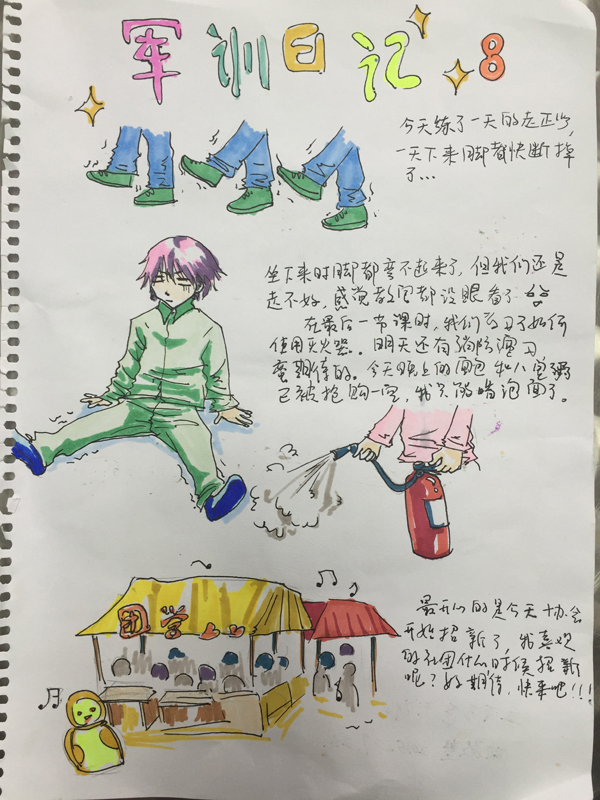 军训日记 8
今天练了一天的走正步,
一天下来脚都快断掉
了...
坐下来时脚都弯不起来了,但我们还是
走不好,感觉教官都没眼看了
在最后一节课时,我们学习了如何
使用灭火器。明天还有消防演习
蛮期待的。今天晚上的面包和八宝粥
已被抢购一空,我只能啃泡面了。
团营
最开心的是今天十协会
开始招新了,我喜欢
的社团什么时候招新
呢?好期待,快来吧!!!